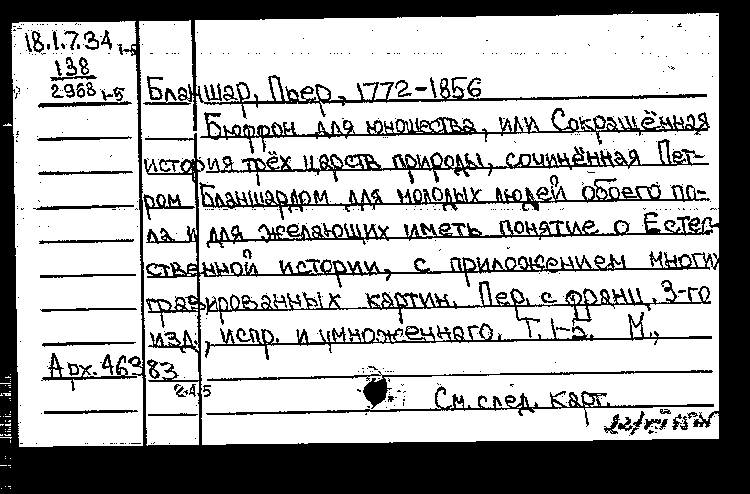 18.1.7.34 1-5
138
2968 1-5
Бланшар, Пьер, 1772-1856
Бюффон для юношества, или Сокращённая
история трёх царств природы, сочинённая Пет-
ром Бланшардом для молодых людей обоего по-
ла и для желающих иметь понятие о Естес-
ственной истории, с приложением многих
гравированных картин. Пер. с франц. 3-го
изд., испр. и умноженнаго. Т. 1-5. М.,
Арх. 46383
2.4.5
См. след. карт.